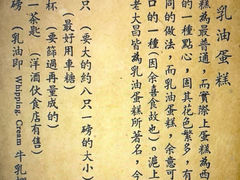 乳油蛋糕
糕為最普通，而實際上蛋糕為西
的一種點心，因其花色繁多，有
同的做法，而乳油蛋糕，余意可
口的一種（因余喜食故也）。滬上
老大昌皆為乳油蛋糕所著名，今
（要大的約八只一磅的大小）
（最好用車糖）
杯（要篩過再量成的）
一茶匙（洋酒伙食店有售）
磅（乳油即 Whipping Cream 牛乳